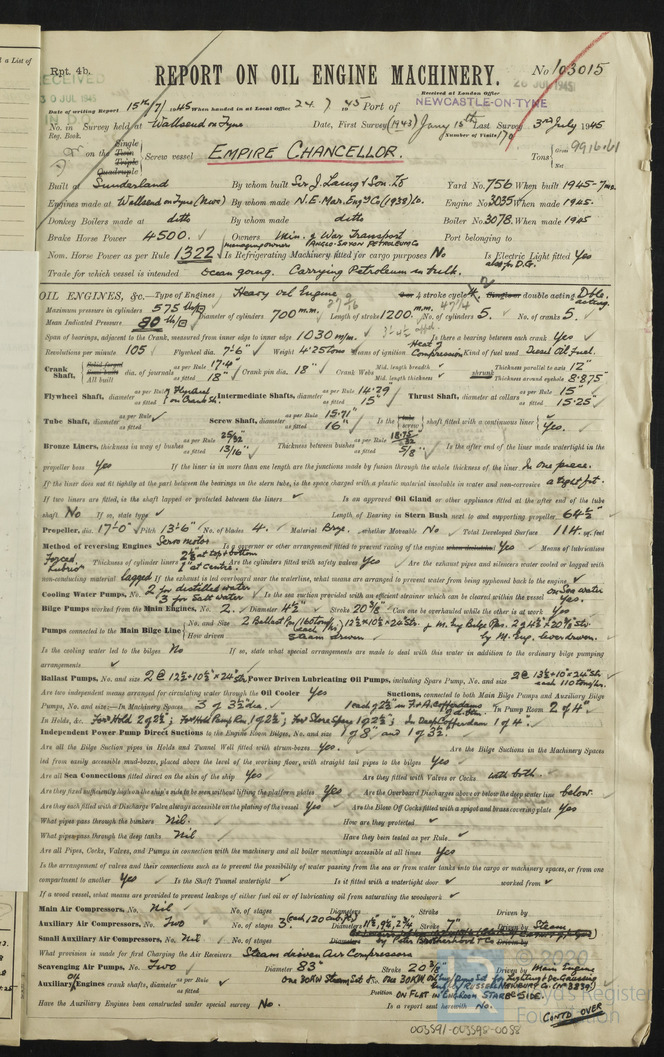 Rpt. 4b.
REPORT ON OIL ENGINE MACHINERY.
No 103015
RECEIVED
30 JUL 1945
Received at London Office
26 JUL 1945
Date of writing Report 15th/7/1945 When handed in at Local Office 24.7.1945 Port of NEWCASTLE-ON-TYNE
No. in Survey held at Wallsend on Tyne Date, First Survey (1943) Jany 15th Last Survey 3rd July 1945
Reg. Book. Number of Visits 170
on the Single Twin Triple Quadruple Screw vessel EMPIRE CHANCELLOR. Tons Gross 9916.61 Net
Built at Sunderland By whom built Sir J. Laing & Son Ld Yard No. 756 When built 1945-7mo.
Engines made at Wallsend on Tyne By whom made N.E. Mar. Engg Co (1938) Ld. Engine No. 3035 When made 1945.
Donkey Boilers made at ditto By whom made ditto Boiler No. 3078 When made 1945
Brake Horse Power 4500. Owners Min. of War Transport Port belonging to
managing owners ANGLO-SAXON PETROLEUM Co
Nom. Horse Power as per Rule 1322 Is Refrigerating Machinery fitted for cargo purposes No Is Electric Light fitted Yes
also for D.G.
Trade for which vessel is intended Ocean going. Carrying Petroleum in bulk.
OIL ENGINES, &c.—Type of Engines Heavy Oil Engine 2 or 4 stroke cycle 4 Single or double acting Dble. acting.
Maximum pressure in cylinders 575 lb/□" Diameter of cylinders 700 m.m. Length of stroke 1200 m.m. No. of cylinders 5. No. of cranks 5.
Mean Indicated Pressure 80 lb/□"
Span of bearings, adjacent to the Crank, measured from inner edge to inner edge 1030 m/m. Is there a bearing between each crank Yes
Revolutions per minute 105 Flywheel dia. 7'-6" Weight 4.25 tons Means of ignition Heat of Compression Kind of fuel used Diesel Oil Fuel.
Crank Shaft, Solid forged Semi built All built dia. of journals as per Rule 17.4" as fitted 18" Crank pin dia. 18" Crank Webs Mid. length breadth Mid. length thickness shrunk Thickness parallel to axis 12" Thickness around eyehole 8.875"
Flywheel Shaft, diameter as per Rule as fitted Flywheel on Crank Sh. Intermediate Shafts, diameter as per Rule 14.29" as fitted 15" Thrust Shaft, diameter at collars as per Rule 15" as fitted 15.25"
Tube Shaft, diameter as per Rule as fitted Screw Shaft, diameter as per Rule 15.71" as fitted 16" Is the tube screw shaft fitted with a continuous liner Yes.
Bronze Liners, thickness in way of bushes as per Rule 25/32" as fitted 13/16" Thickness between bushes as per Rule as fitted 5/8" Is the after end of the liner made watertight in the
propeller boss Yes If the liner is in more than one length are the junctions made by fusion through the whole thickness of the liner In one piece.
If the liner does not fit tightly at the part between the bearings in the stern tube, is the space charged with a plastic material insoluble in water and non-corrosive a tight fit.
If two liners are fitted, is the shaft lapped or protected between the liners Is an approved Oil Gland or other appliance fitted at the after end of the tube
shaft No If so, state type Length of Bearing in Stern Bush next to and supporting propeller 64½"
Propeller, dia. 17'-0" Pitch 13'-6" No. of blades 4. Material Brze. whether Moveable No Total Developed Surface 114 sq. feet
Method of reversing Engines Servo motor Is a governor or other arrangement fitted to prevent racing of the engine when declutched Yes Means of lubrication
Forced Lubricn Thickness of cylinder liners 2⅛" at top & bottom 2" at centre. Are the cylinders fitted with safety valves Yes Are the exhaust pipes and silencers water cooled or lagged with
non-conducting material lagged If the exhaust is led overboard near the waterline, what means are arranged to prevent water from being syphoned back to the engine
Cooling Water Pumps, No. 2 for distilled water 3 for salt water Is the sea suction provided with an efficient strainer which can be cleared within the vessel on sea water Yes.
Bilge Pumps worked from the Main Engines, No. 2. Diameter 4½" Stroke 20⅞" Can one be overhauled while the other is at work Yes
Pumps connected to the Main Bilge Line No. and Size 2 Ballast Pns (160 tons/hr) each 12½ x 10½ x 24" str. & M. Eng Bilge Pps. 2 @ 4½" x 20⅞" str.
How driven Steam driven by M. Eng. lever driven.
Is the cooling water led to the bilges No If so, state what special arrangements are made to deal with this water in addition to the ordinary bilge pumping
arrangements
Ballast Pumps, No. and size 2 @ 12½" x 10½" x 24" str Power Driven Lubricating Oil Pumps, including Spare Pump, No. and size 2 @ 13½" x 10" x 24" str each 110 tons/hr.
Are two independent means arranged for circulating water through the Oil Cooler Yes Suctions, connected to both Main Bilge Pumps and Auxiliary Bilge
Pumps, No. and size:—In Machinery Spaces 3 of 3½" dia. 1 each of 2½" in For'd & A. Cofferdams In Pump Room 2 of 4"
In Holds, &c. For'd Hold 2 of 2½"; For'd Hold Pump Rm. 1 of 2½"; For'd Store Space 1 of 2½"; In Deep Cofferdam 1 of 4".
Independent Power Pump Direct Suctions to the Engine Room Bilges, No. and size 1 of 8" and 1 of 3½".
Are all the Bilge Suction pipes in Holds and Tunnel Well fitted with strum-boxes Yes. Are the Bilge Suctions in the Machinery Spaces
led from easily accessible mud-boxes, placed above the level of the working floor, with straight tail pipes to the bilges Yes
Are all Sea Connections fitted direct on the skin of the ship Yes Are they fitted with Valves or Cocks with both.
Are they fixed sufficiently high on the ship's side to be seen without lifting the platform plates Yes Are the Overboard Discharges above or below the deep water line below.
Are they each fitted with a Discharge Valve always accessible on the plating of the vessel Yes Are the Blow Off Cocks fitted with a spigot and brass covering plate Yes
What pipes pass through the bunkers Nil. How are they protected
What pipes pass through the deep tanks Nil Have they been tested as per Rule
Are all Pipes, Cocks, Valves, and Pumps in connection with the machinery and all boiler mountings accessible at all times Yes
Is the arrangement of valves and their connections such as to prevent the possibility of water passing from the sea or from water tanks into the cargo or machinery spaces, or from one
compartment to another Yes Is the Shaft Tunnel watertight Is it fitted with a watertight door worked from
If a wood vessel, what means are provided to prevent leakage of either fuel oil or of lubricating oil from saturating the woodwork
Main Air Compressors, No. Nil No. of stages Diameters Stroke Driven by
Auxiliary Air Compressors, No. Two No. of stages 3. (each 120 cub. ft.) Diameters 11½, 9½, 2¾" Stroke 7" Driven by Steam
Small Auxiliary Air Compressors, No. Nil No. of stages Diameters by Peter Brotherhood & Co Driven by
What provision is made for first Charging the Air Receivers Steam driven Air Compressors
Scavenging Air Pumps, No. Two Diameter 83" Stroke 20⅞" Driven by Main Engine
Auxiliary Oil Engines crank shafts, diameter as per Rule as fitted One 30KW Steam Set & No. One 30KW Oil Eng/Dyno Set for Lighting & De Gaussing
by RUSSELL NEWBURY Co. (No 3839)
Position ON FLAT IN ENG. ROOM STARB'D SIDE.
Have the Auxiliary Engines been constructed under special survey No. Is a report sent herewith No.
CONTD OVER
003591-003598-0088
© 2020
Lloyd's Register
Foundation